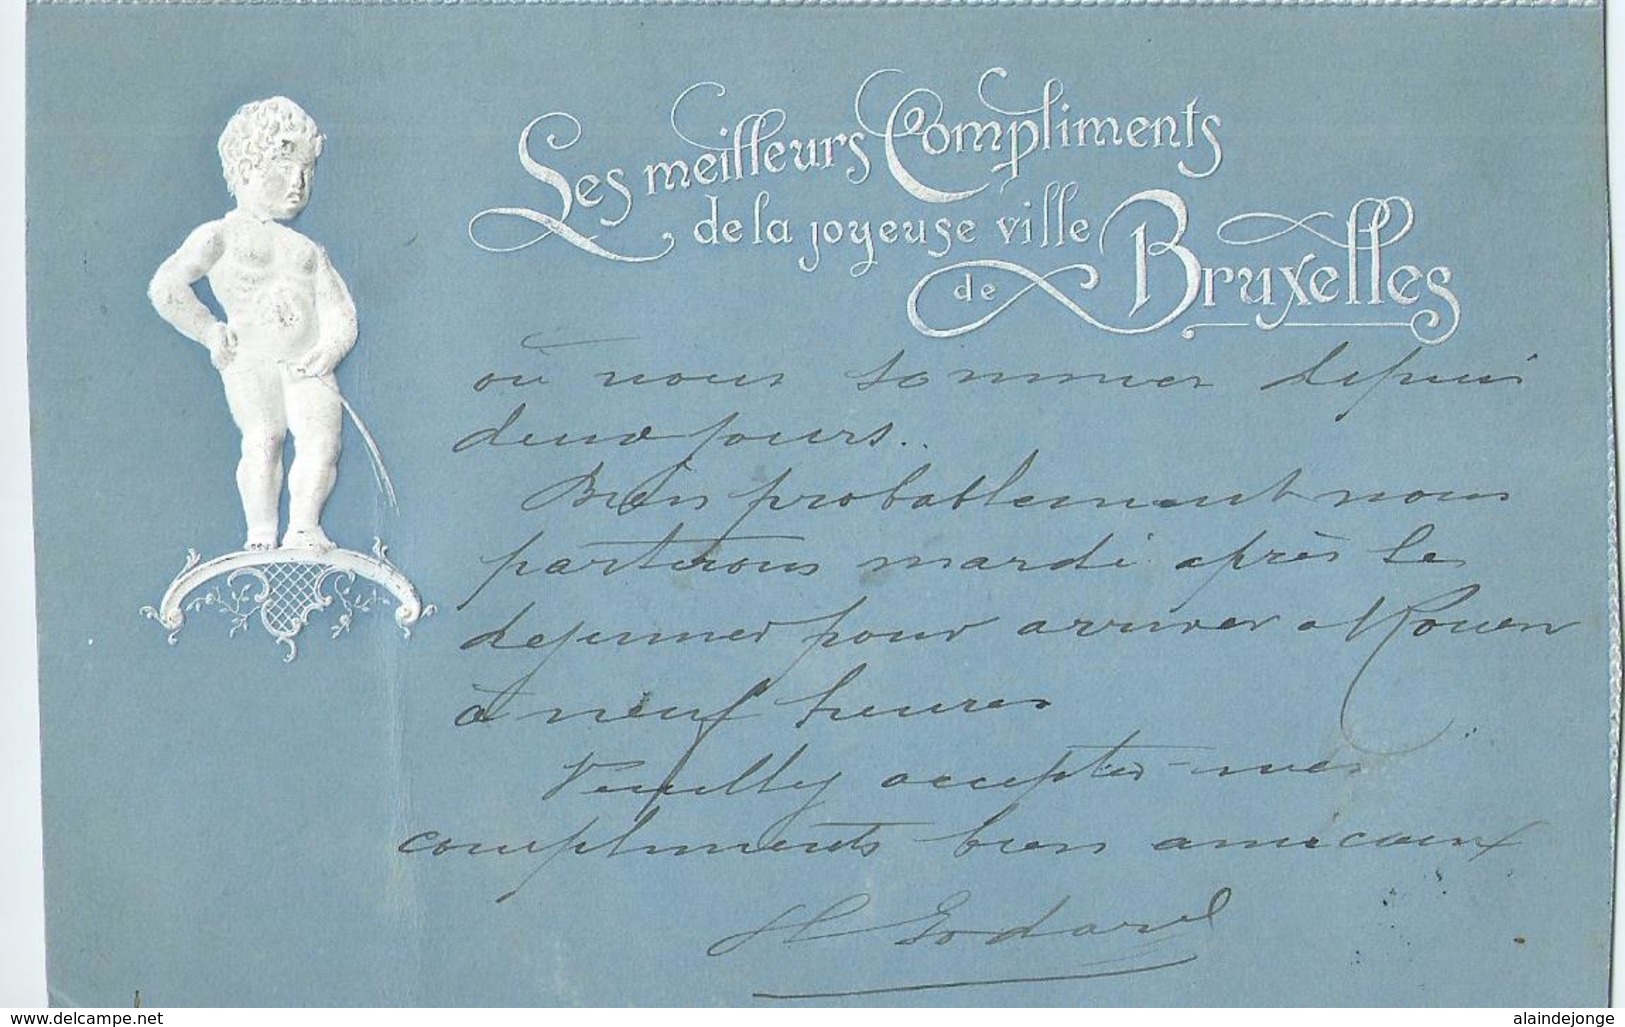 Les meilleurs Compliments
de la joyeuse ville
de Bruxelles
où nous sommes depuis
deux jours..
Bien probablement nous
partirons mardi après le
dejeuner pour arriver a Rouen
à neuf heures
Veuillez accepter mes
compliments bien amicaux
H Godard
www.delcampe.net
alaindejonge